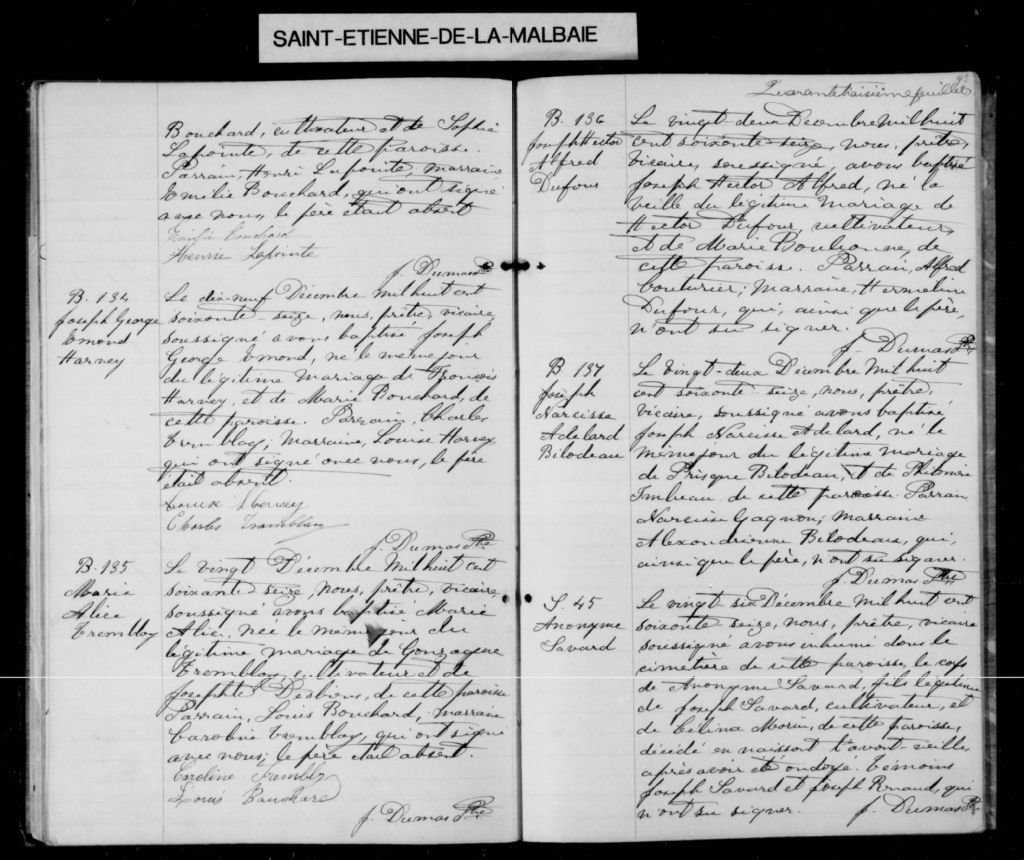 SAINT-ETIENNE-DE-LA-MALBAIE
Bouchard, cultivateur et de Sophie
Lapointe, de cette paroisse.
Parrain, Henri Lapointe, marraine
Emélie Bouchard, qui ont signé
avec nous, le père était absent
Bouchard
Henrie Lapointe
J. Dumas Ptre
B. 134
Joseph George
Emond
Harvey
Le dix-neuf Décembre mil huit cent
soixonte-seize, nous, prêtre, vicaire,
soussigné avons baptisé Joseph
George Emond, né le même jour
du légitime mariage de François
Harvey, et de Marie Bouchard, de
cette paroisse. Parrain, Charles
Tremblay; Marraine, Louise Harvey
qui ont signé avec nous, le père
était absent.
Louise Harvey
Charles Tremblay
J. Dumas Ptre
B. 135
Marie
Alice
Tremblay
Le vingt Décembre mil huit cent
soixante seize, nous, prêtre, vicaire,
soussigné avons baptisé Marie
Alice, née le même jour du
légitime mariage de Gonzague
Tremblay, cultivateur et de
Josephte Desbiens, de cette paroisse
Parrain, Louis Bouchard, Marraine
Caroline Tremblay, qui ont signé
avec nous; le père était absent.
Caroline Trembly
Louis Bouchard
J. Dumas Ptre
Quarante troisième feuillet
B. 136
Joseph Hector
Alfred
Dufour
Le vingt-deux Décembre mil huit
cent soixonte seize, nous, prêtre,
vicaire, soussigné, avons baptisé
Joseph Hector Alfred, né la
veille du légitime mariage de
Hector Dufour, cultivateur,
et de Marie Boulionne, de
cette paroisse. Parrain, Alfred
Couturier; Marraine, Hermeline
Dufour, qui, ainsi que le père,
n'ont su signer.
J. Dumas Ptre
B 137
Joseph
Narcisse
Adelard
Bilodeau
Le vingt-deux Décembre mil huit
cent soixonte seize, nous, prêtre,
vicaire, soussigné avons baptisé
Joseph Narcisse Adelard, né le
même jour du légitime mariage
de Prisque Bilodeau, et de Philomène
Imbeau de cette paroisse. Parrain
Narcisse Gagnon; Marraine
Alexandrienne Bilodeau, qui,
ainsi que le père, n'ont su signer.
J. Dumas Ptre
S. 45
Anonyme
Savard
Le vingt six Décembre mil huit cent
soixonte seize, nous, prêtre, vicaire
soussigné avons inhumé dans le
cimetière de cette paroisse, le corps
de Anonyme Savard, fils légitime
de Joseph Savard, cultivateur, et
de Célina Morin, de cette paroisse,
décédé en naissant l'avant-veille,
après avoir été ondoyé. Témoins
Joseph Savard et Joseph Renaud, qui
n'ont su signer.
J. Dumas Ptre